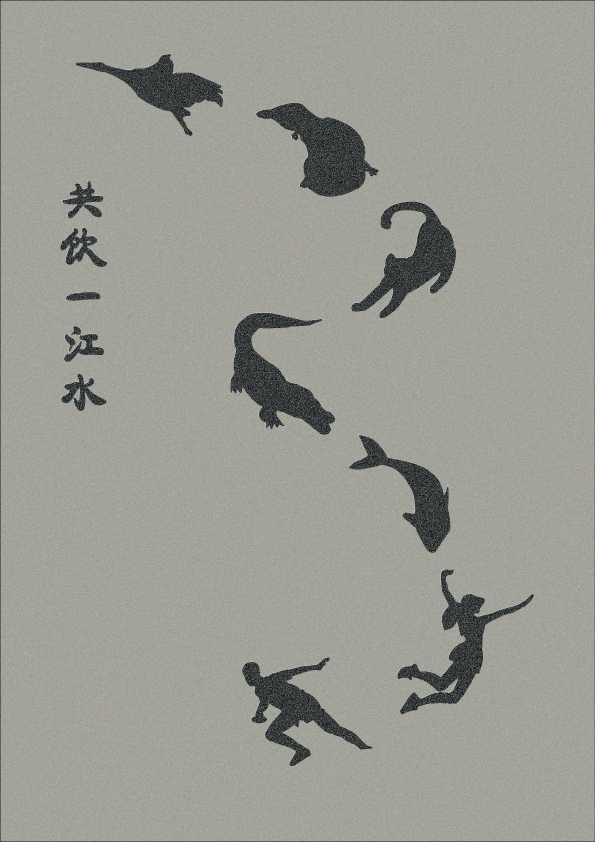 共饮一江水